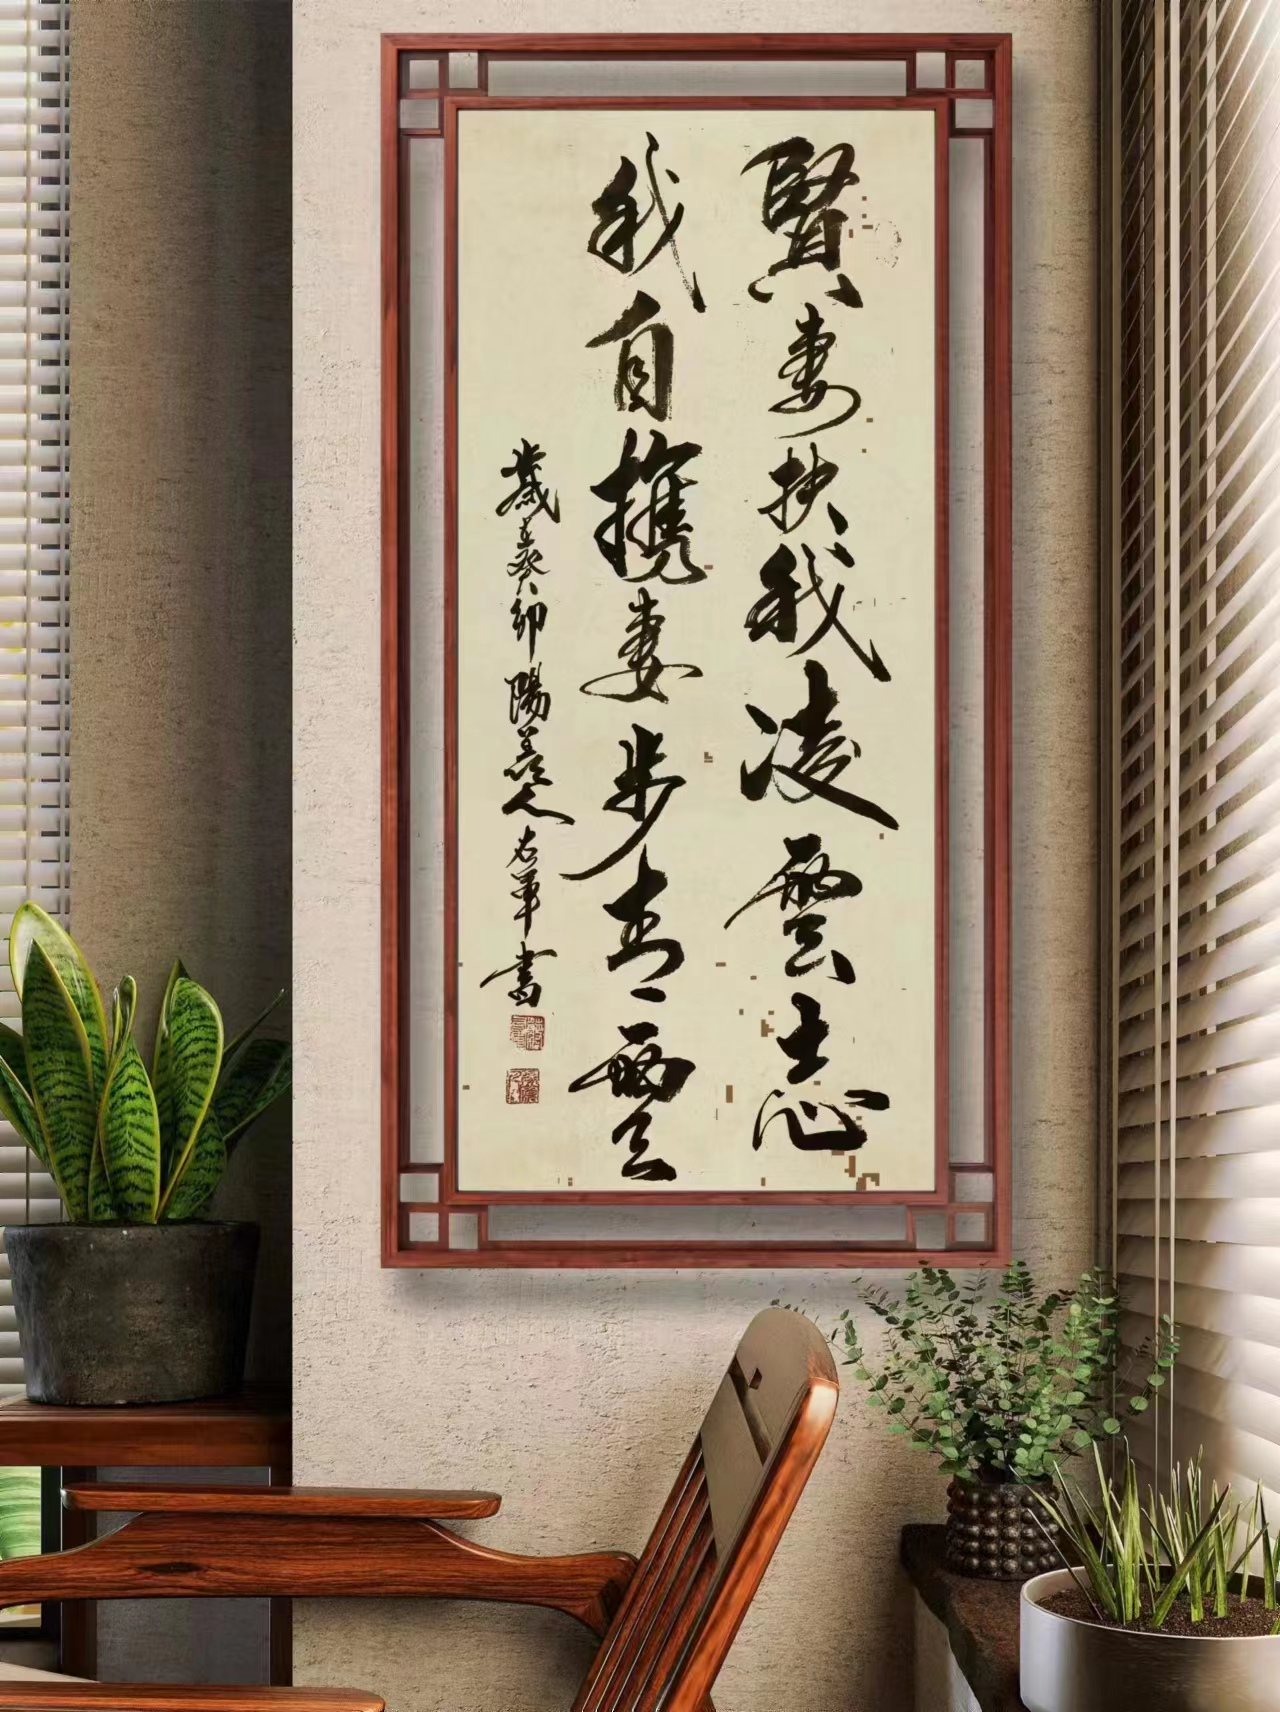 賢妻扶我凌雲志
我自携妻步青雲
歲在癸卯陽羡人右軍書